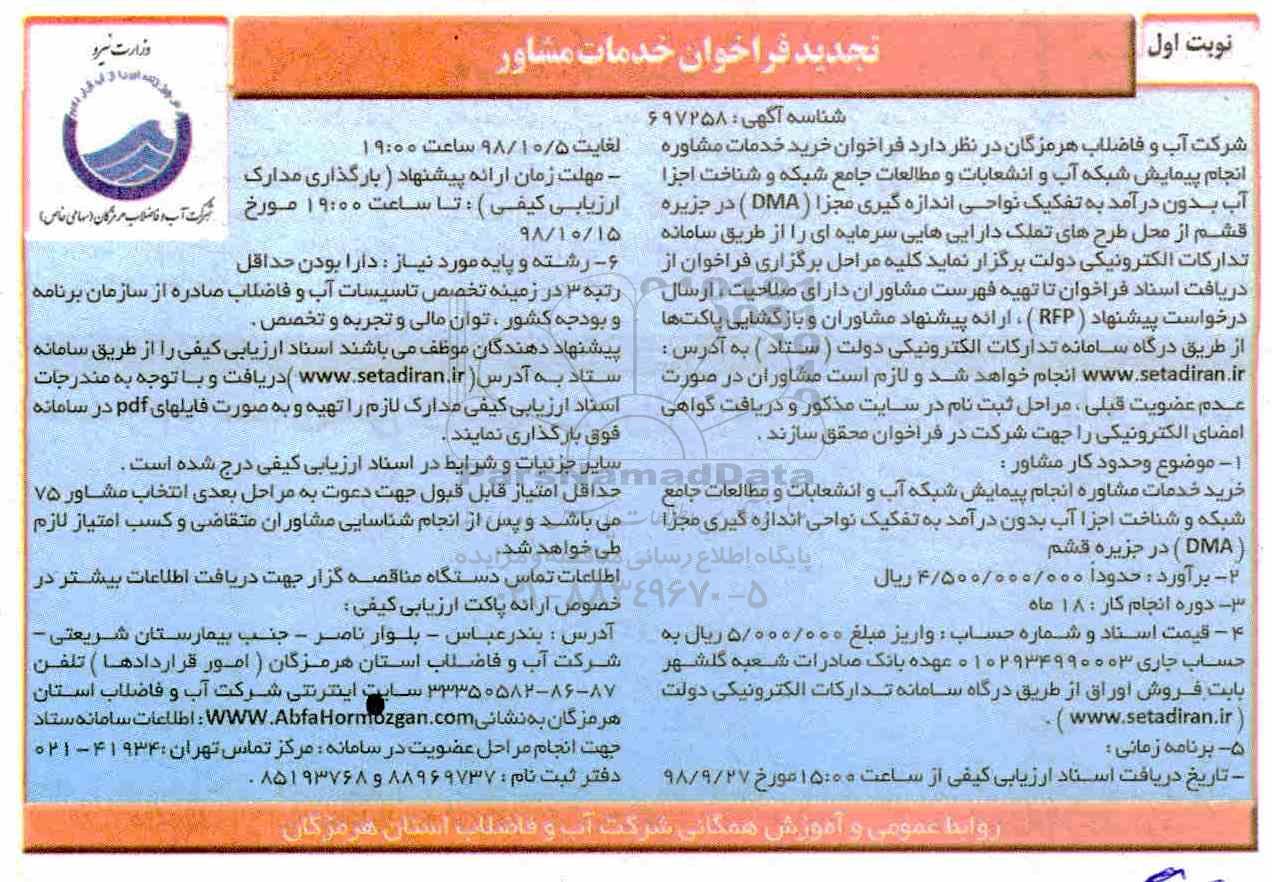 نوبت اول
تجدید فراخوان خدمات مشاور
وزارت نیرو
شرکت آب و فاضلاب هرمزگان (سهامی خاص)
شناسه آگهی: ۶۹۷۲۵۸
شرکت آب و فاضلاب هرمزگان در نظر دارد فراخوان خرید خدمات مشاوره
انجام پیمایش شبکه آب و انشعابات و مطالعات جامع شبکه و شناخت اجزا
آب بدون درآمد به تفکیک نواحی اندازه گیری مجزا (DMA) در جزیره
قشم از محل طرح های تملک دارایی هایی سرمایه ای را از طریق سامانه
تدارکات الکترونیکی دولت برگزار نماید کلیه مراحل برگزاری فراخوان از
دریافت اسناد فراخوان تا تهیه فهرست مشاوران دارای صلاحیت، ارسال
درخواست پیشنهاد (RFP)، ارائه پیشنهاد مشاوران و بازگشایی پاکت‌ها
از طریق درگاه سامانه تدارکات الکترونیکی دولت (ستاد) به آدرس:
www.setadiran.ir انجام خواهد شد و لازم است مشاوران در صورت
عدم عضویت قبلی، مراحل ثبت نام در سایت مذکور و دریافت گواهی
امضای الکترونیکی را جهت شرکت در فراخوان محقق سازند.
۱- موضوع وحدود کار مشاور:
خرید خدمات مشاوره انجام پیمایش شبکه آب و انشعابات و مطالعات جامع
شبکه و شناخت اجزا آب بدون درآمد به تفکیک نواحی اندازه گیری مجزا
(DMA) در جزیره قشم
۲- برآورد: حدوداً ۴/۵۰۰/۰۰۰/۰۰۰ ریال
۳- دوره انجام کار: ۱۸ ماه
۴- قیمت اسناد و شماره حساب: واریز مبلغ ۵/۰۰۰/۰۰۰ ریال به
حساب جاری ۰۱۰۲۹۳۴۹۹۰۰۰۳ عهده بانک صادرات شعبه گلشهر
بابت فروش اوراق از طریق درگاه سامانه تدارکات الکترونیکی دولت
(www.setadiran.ir).
۵- برنامه زمانی:
- تاریخ دریافت اسناد ارزیابی کیفی از ساعت ۱۵:۰۰ مورخ ۹۸/۹/۲۷
لغایت ۹۸/۱۰/۵ ساعت ۱۹:۰۰
- مهلت زمان ارائه پیشنهاد (بارگذاری مدارک
ارزیابی کیفی): تا ساعت ۱۹:۰۰ مورخ
۹۸/۱۰/۱۵
۶- رشته و پایه مورد نیاز: دارا بودن حداقل
رتبه ۳ در زمینه تخصص تاسیسات آب و فاضلاب صادره از سازمان برنامه
و بودجه کشور، توان مالی و تجربه و تخصص.
پیشنهاد دهندگان موظف می باشند اسناد ارزیابی کیفی را از طریق سامانه
ستاد به آدرس (www.setadiran.ir) دریافت و با توجه به مندرجات
اسناد ارزیابی کیفی مدارک لازم را تهیه و به صورت فایلهای pdf در سامانه
فوق بارگذاری نمایند.
سایر جزئیات و شرایط در اسناد ارزیابی کیفی درج شده است.
حداقل امتیاز قابل قبول جهت دعوت به مراحل بعدی انتخاب مشاور ۷۵
می باشد و پس از انجام شناسایی مشاوران متقاضی و کسب امتیاز لازم
طی خواهد شد.
اطلاعات تماس دستگاه مناقصه گزار جهت دریافت اطلاعات بیشتر در
خصوص ارائه پاکت ارزیابی کیفی:
آدرس: بندرعباس - بلوار ناصر - جنب بیمارستان شریعتی -
شرکت آب و فاضلاب استان هرمزگان (امور قراردادها) تلفن
۳۳۳۵۰۵۸۲-۸۶-۸۷ سایت اینترنتی شرکت آب و فاضلاب استان
هرمزگان به نشانی WWW.AbfaHormozgan.com: اطلاعات سامانه ستاد
جهت انجام مراحل عضویت در سامانه: مرکز تماس تهران: ۴۱۹۳۴-۰۲۱
دفتر ثبت نام: ۸۸۹۶۹۷۳۷ و ۸۵۱۹۳۷۶۸.
ParsNamadData
پایگاه اطلاع رسانی مناقصه و مزایده
۰۲۱-۸۸۳۴۹۶۷۰-۵
روابط عمومی و آموزش همگانی شرکت آب و فاضلاب استان هرمزگان